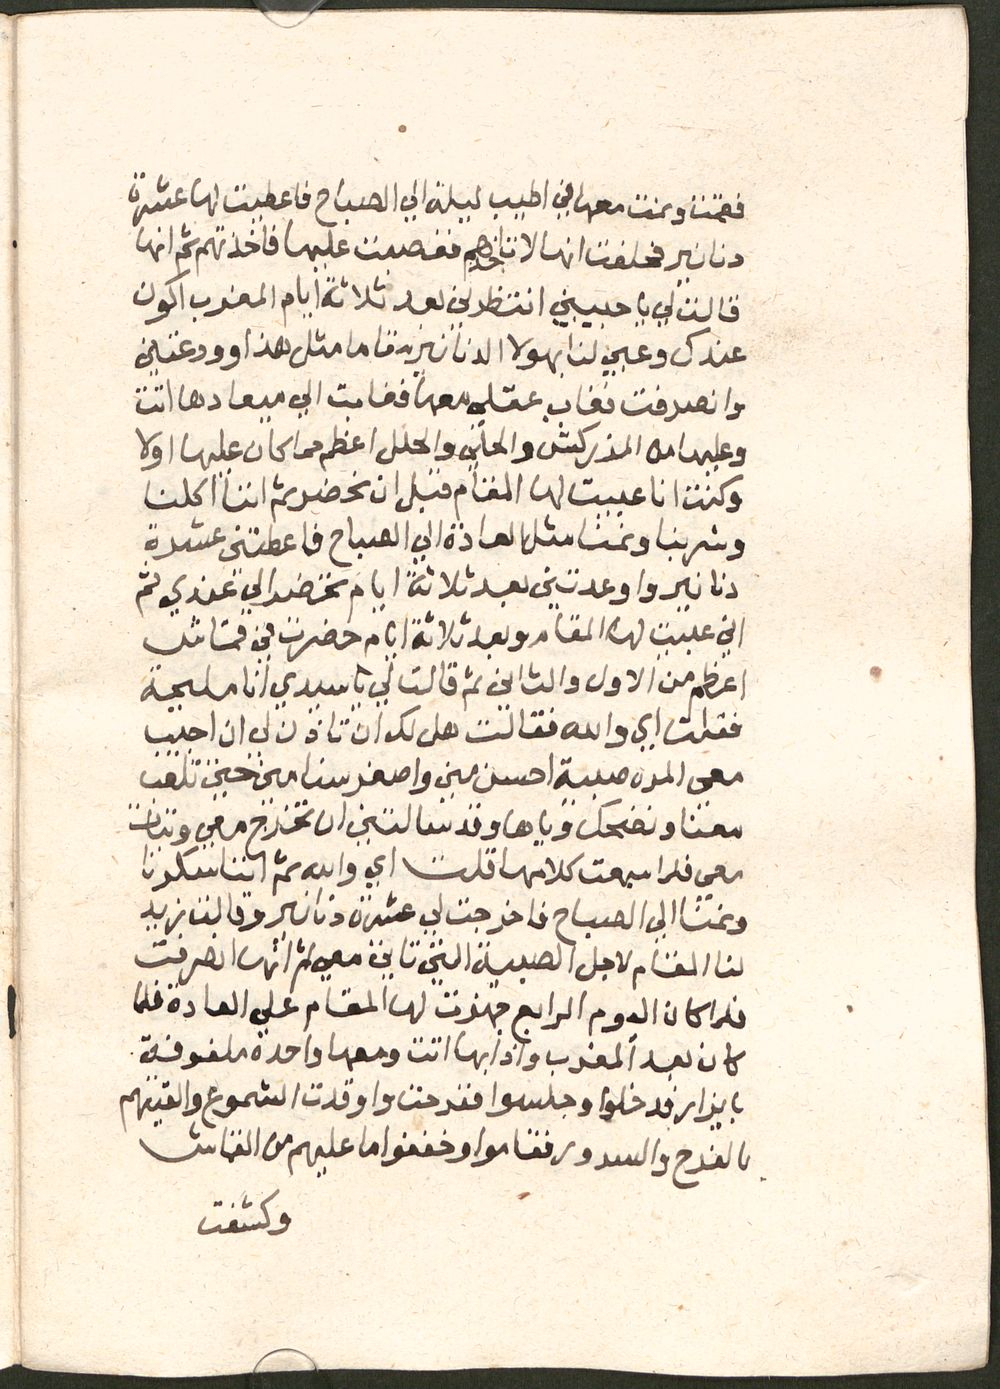 فقمت ونمت معها في اطيب ليلة الي الصباح فاعطيت لها عشرة
دنانير فحلفت انها لا تاخذهم فغصبت عليها فاخذتهم ثم انها
قالت لي يا حبيبي انتظرني بعد ثلاثة ايام المغرب اكون
عندك وعبي لنا بهولا الدنانير مقاما مثل هذا وودعتني
وانصرفت فغاب عقلي معها فغابت الي ميعادها اتت
وعليها من المزركش والحلي والحلل اعظم مما كان عليها اولا
وكنت انا عبيت لها المقام قبل ان تحضر ثم اننا اكلنا
وشربنا ونمنا مثل العادة الي الصباح فاعطتني عشرة
دنانير واوعدتني بعد ثلاثة ايام تحضر الي عندي ثم
اني عبيت لها المقام وبعد ثلاثة ايام حضرت في قماش
اعظم من الاول والثاني ثم قالت لي يا سيدي انا مليحة
فقلت اي والله فقالت هل لك ان تاذن لي ان اجيب
معي المره صبية احسن مني واصغر سنا مني حتي تلعب
معنا ونضحك وياها وقد سالتني ان تخرج معي وتبات
معي فلما سمعت كلامها قلت اي والله ثم اننا سكرنا
ونمنا الي الصباح فاخرجت لي عشرة دنانير وقالت زيد
لنا المقام لاجل الصبية التي تاتي معي ثم انها انصرفت
فلما كان اليوم الرابع جهزت لها المقام علي العادة فلما
كان بعد المغرب واذا بها اتت ومعها واحدة ملفوفة
بايزار فدخلوا وجلسوا ففرحت واوقدت الشموع والقيتهم
بالفرح والسرور فقاموا وخففوا ما عليهم من القماش
وكشفت